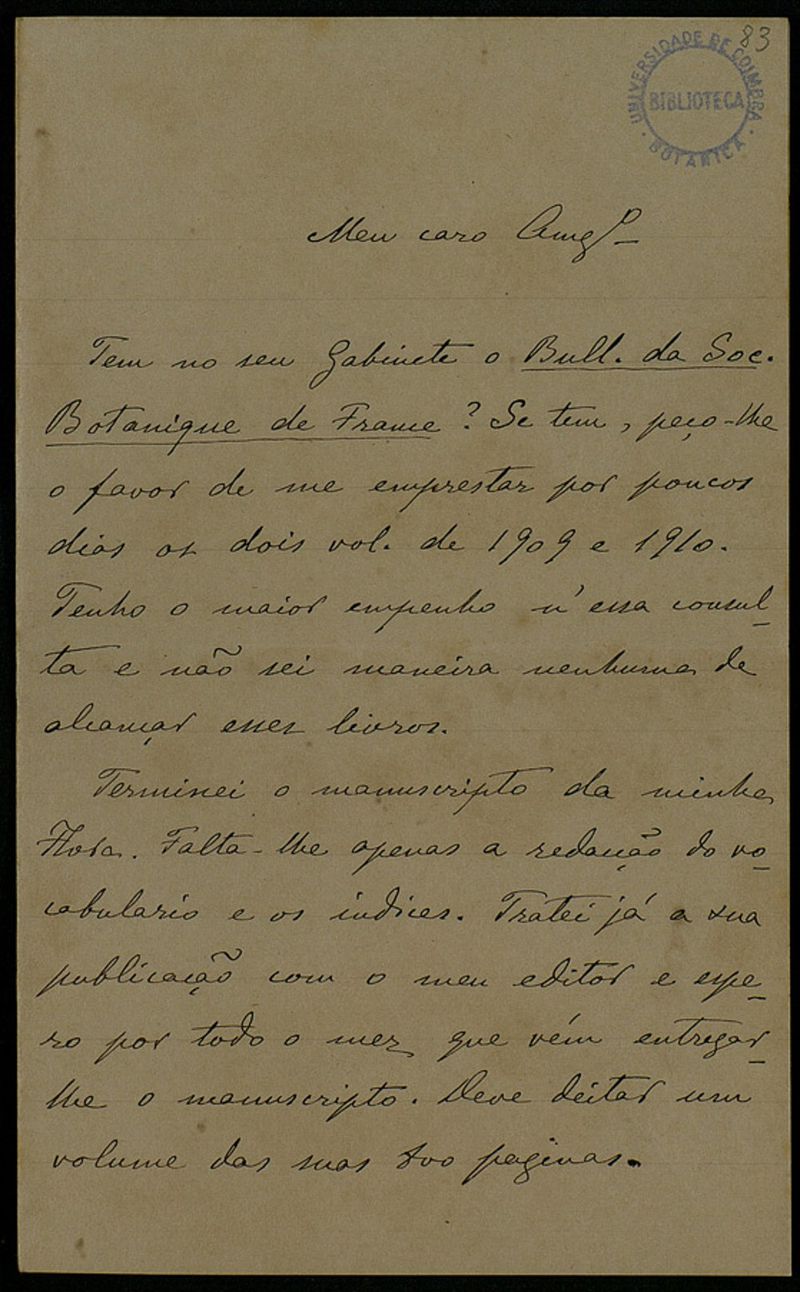 83
UNIVERSIDADE DE COIMBRA
BIBLIOTECA
BOTANICA
Meu caro Amgº
Tem no seu Gabinete o Bull. da Soc.
Botanique de France? Se tem, peço-lhe
o favor de me emprestar por poucos
dias os dois vol. de 1909 e 1910.
Tenho o maior empenho n'essa consul-
ta e não sei maneira nenhuma de
alcançar esses livros.
Terminei o manuscripto da minha
Flora. Falta-lhe apenas a redacção do vo-
cabulario e os indices. Tratei já a sua
publicação com o meu editor e espe-
ro por todo o mez que vém entregar-
lhe o manuscripto. Deve deitar um
volume das suas 800 paginas.